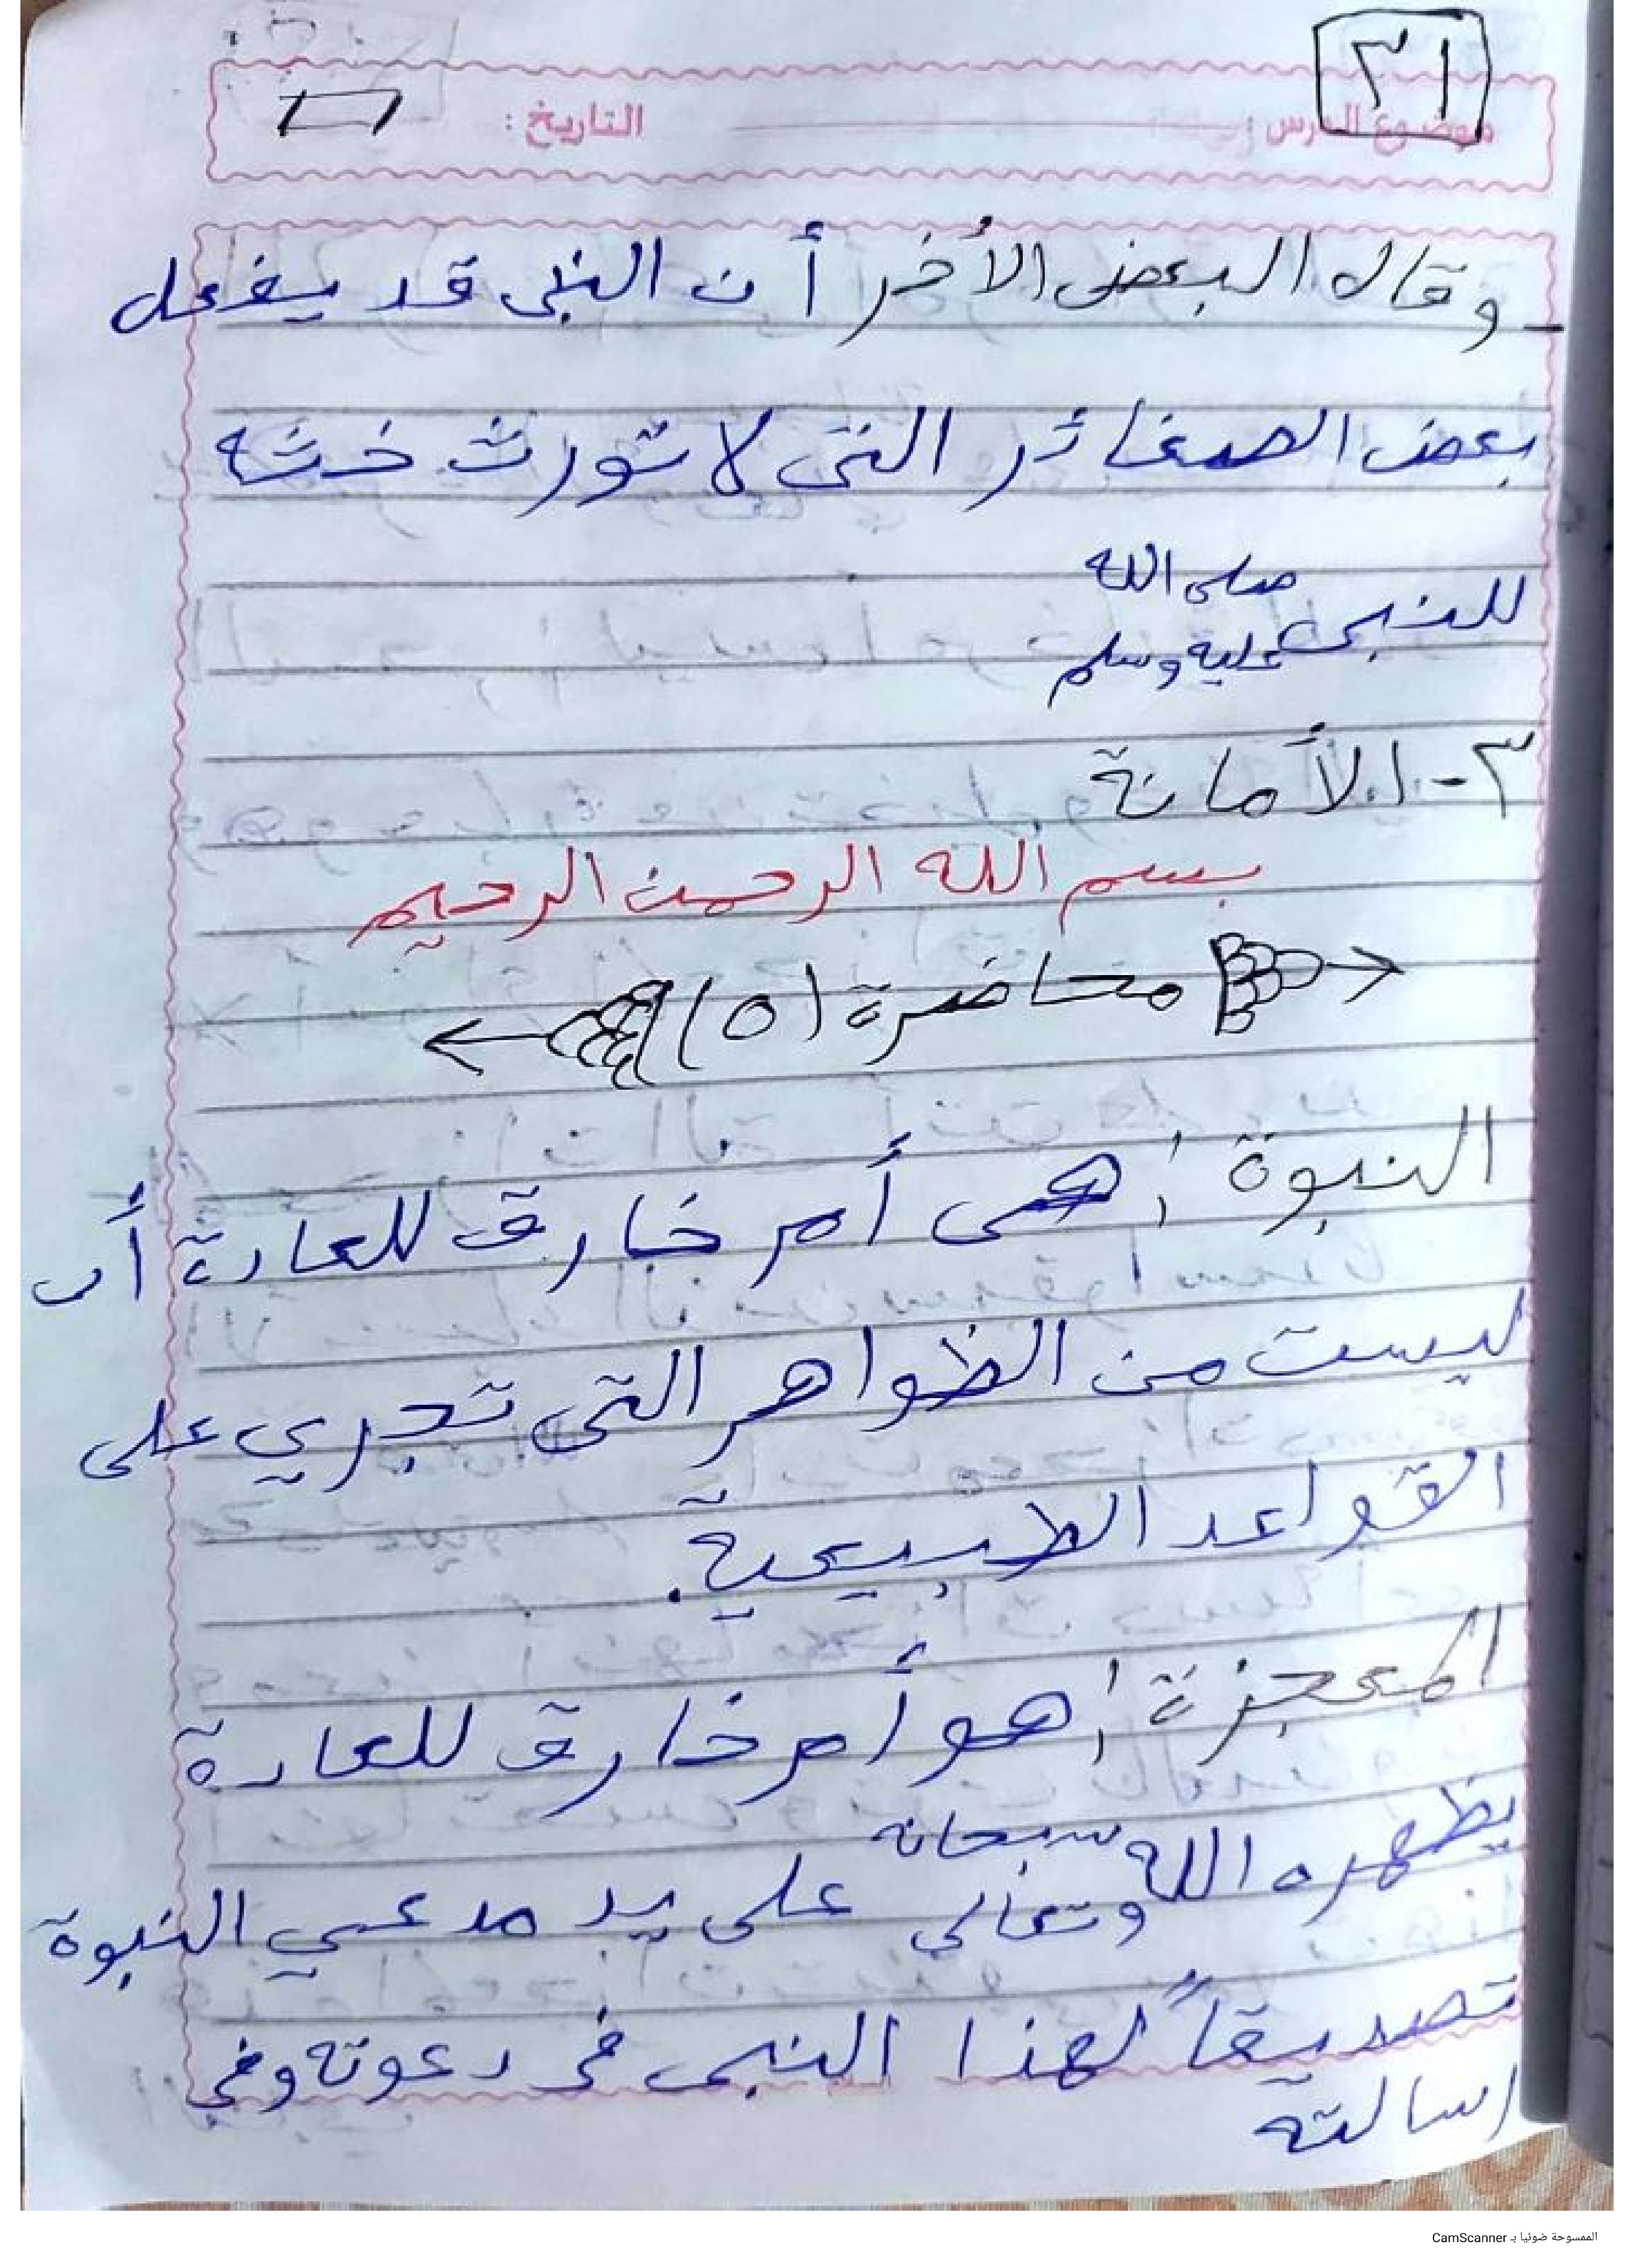 ٣١
موضوع الدرس :
التاريخ :
- وقال البعض الأخر أن النبى قد يفعل
بعض الصغائر التى لا تورث خثه
للنبى صلى الله عليه وسلم
٣- الأمانة
بسم الله الرحمن الرحيم
محاضرة (٥)
النبوة : هى أمر خارق للعادة أى
ليست من الظواهر التى تجري على
القواعد الطبيعية.
المعجزة : هو أمر خارق للعادة
يظهره الله سبحانه وتعالي على يد مدعي النبوة
تصديقاً لهذا النبى فى دعوته وفي
رسالته
الممسوحة ضوئيا بـ CamScanner